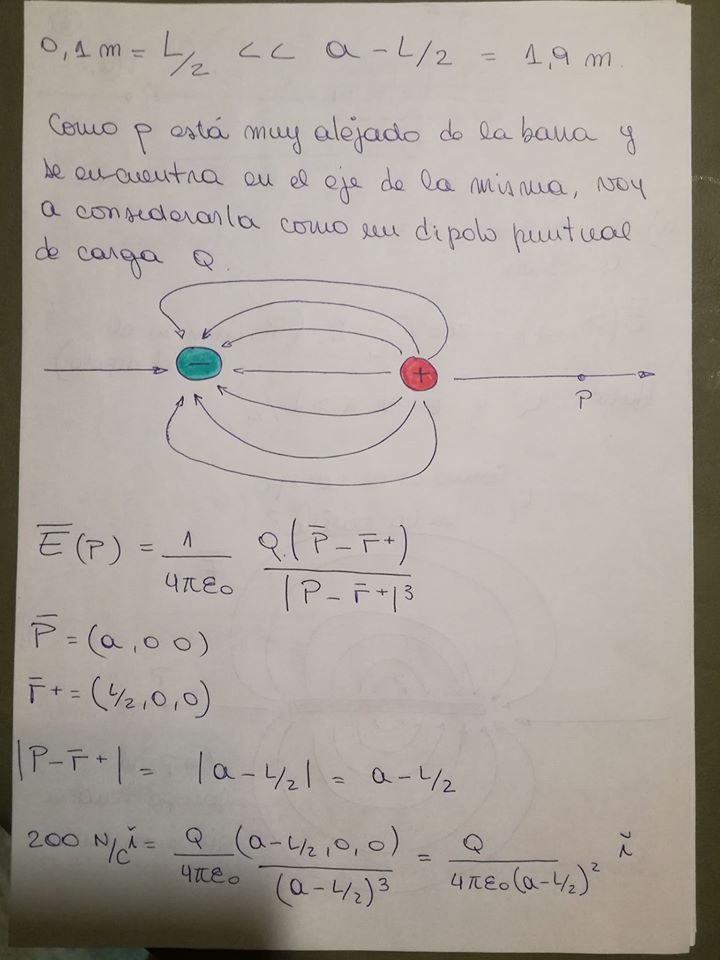 0,1 m = L/2 << a - L/2 = 1,9 m.
Como p está muy alejado de la barra y
se encuentra en el eje de la misma, voy
a considerarla como un dipolo puntual
de carga Q.
- +
P
E̅(P) = 1/4πε₀ Q.(P̅ - r̅+)/|P - r̅+|³
P̅ = (a, 0 0)
r̅+ = (L/2, 0, 0)
|P - r̅+| = |a - L/2| = a - L/2
200 N/C ǐ = Q/4πε₀ (a - L/2, 0, 0)/(a - L/2)³ = Q/4πε₀(a - L/2)² ǐ